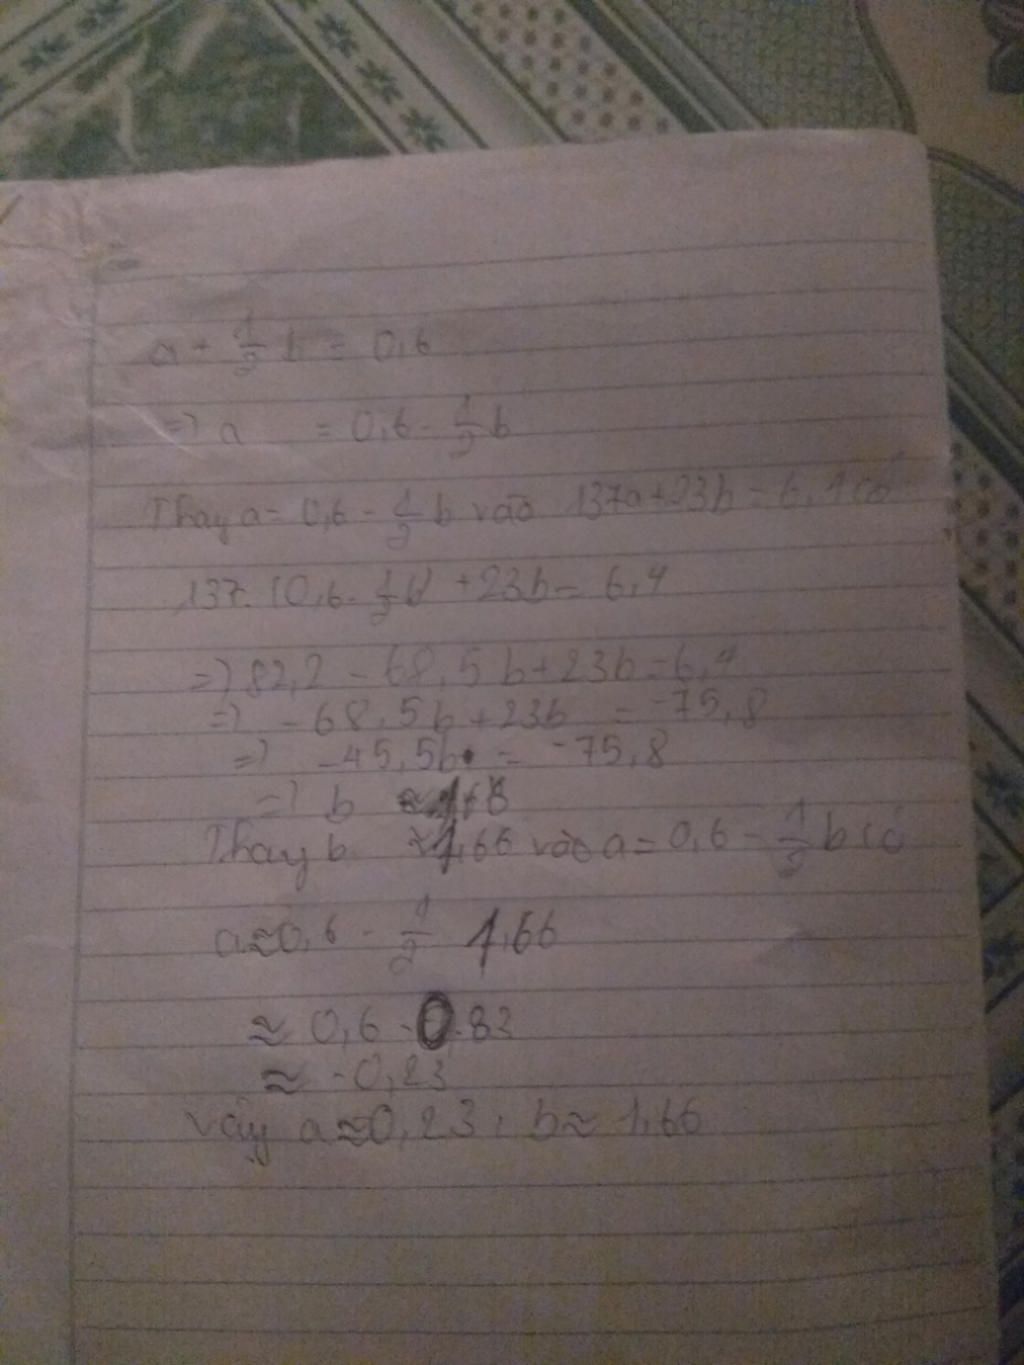 a + 1/2 b = 0,6
=> a = 0,6 - 1/2 b
Thay a = 0,6 - 1/2 b vào 137a + 23b = 6,4 có
137. (0,6 - 1/2 b) + 23b = 6,4
=> 82,2 - 68,5b + 23b = 6,4
=> - 68,5b + 23b = -75,8
=> - 45,5b = -75,8
=> b ≈
Thay b ≈ 1,66 vào a = 0,6 - 1/2 b có
a ≈ 0,6 - 1/2 1,66
≈ 0,6 - 0,83
≈ -0,23
Vậy a ≈ 0,23, b ≈ 1,66